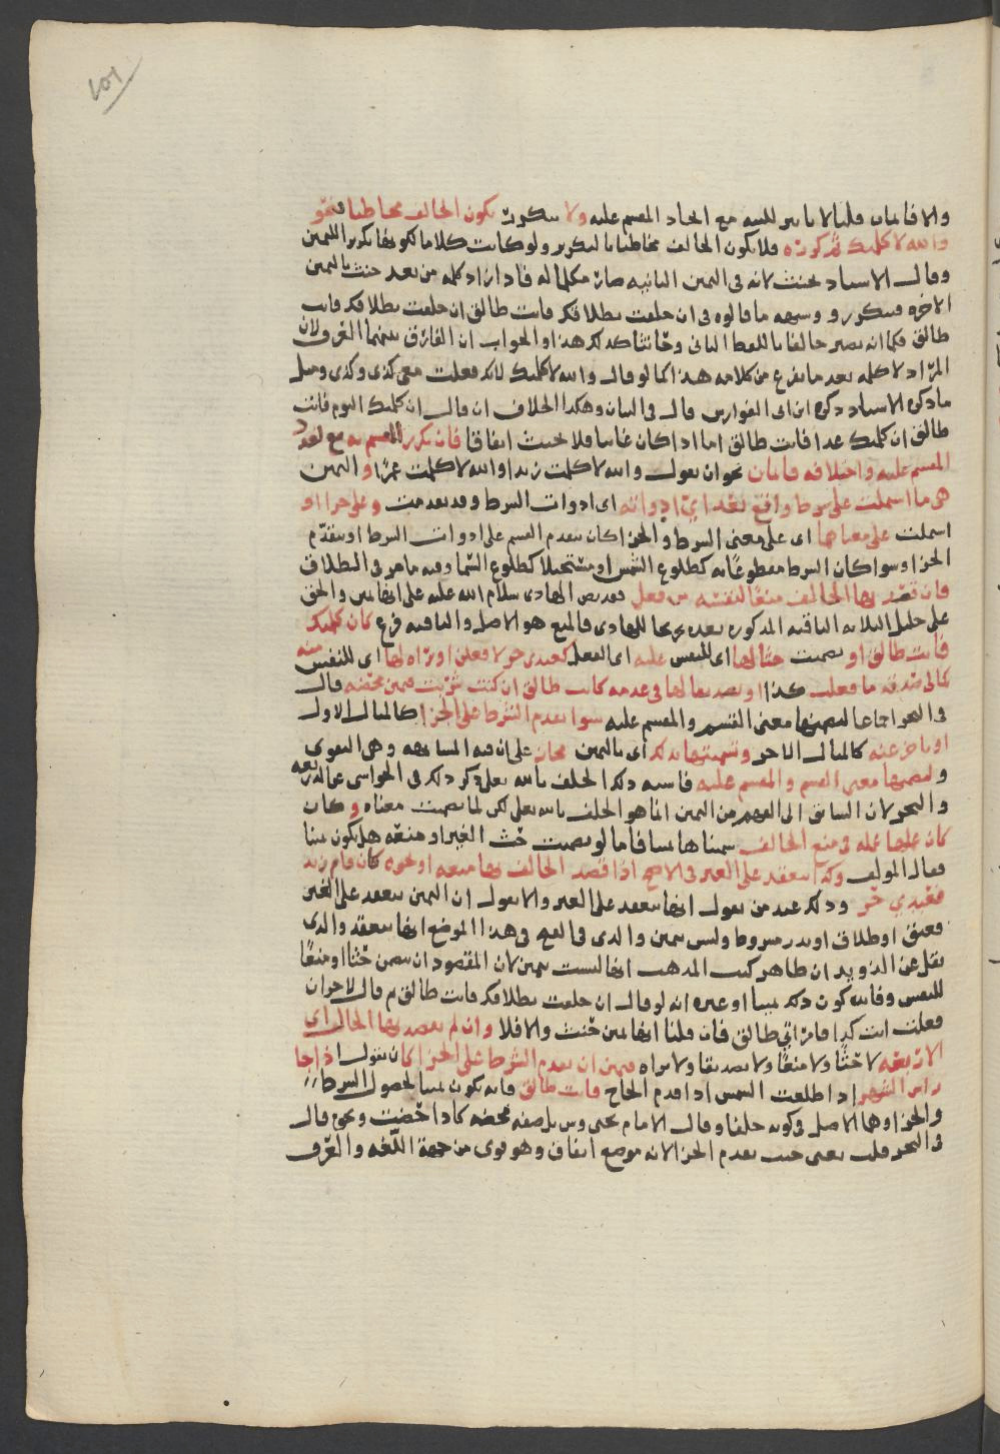 ١٥١
والا فايمان قلنا لا تاثير للنيه مع اتحاد المقسم عليه ولا يتكرر بكون الحالف مخاطبا فنحو
والله لا كلمتك مكررة فلا يكون الحالف مخاطبا بالتكرير ولو كانت كلاما لكونها تكرير اليمين
وقال الاستاد يحنث لانه في اليمين الثانيه صار مكلما له فاذا اراد كلمه من بعد حنث باليمين
الاخره فيتكرر و وشبهه ما قالوه في ان حلفت بطلاقك فانت طالق ان حلفت بطلاقك فانت
طالق فكما انه يصير حالفا باللفظ الثاني وحانثا كذلك هذا والجواب ان الفارق بينهما العرف ولان
المراد لا كلمه بعد ما يفرغ من كلامه هذا كما لو قال والله لا كلمتك لانك فعلت معي كذى وكذى ومثل
ما ذكره الاستاد ذكره ابن ابي الفوارس قال في البيان وهكذا الخلاف ان قال ان كلمتك اليوم فانت
طالق ان كلمتك غدا فانت طالق اما اذا كان غايبا فلا حنث اتفاقا فان تكرر المقسم به مع تعدد
المقسم عليه واختلافه فايمان نحو ان يقول والله لا كلمت زيدا والله لا كلمت عمرًا و اليمين
هي ما اشتملت على شرط واقع بعد اي ادواته اى ادوات الشرط وقد تقدمت وعلى جزا او
اشتملت على معناهما اى على معنى الشرط والجزا كان يتقدم القسم على ادوات الشرط او يتقدم
الجزا وسوا كان الشرط مقطوعًا به كطلوع الشمس او مستحيلا كطلوع السما وفيه ما مر في الطلاق
فان قصد بها الحالف منعًا لنفسه من فعل فقد نص الهادى سلام الله عليه على انها يمين والحق
على خليل الثلاثه الباقيه المذكوره بعده تخريجا للهادي فالمنع هو الاصل والباقيه فرع كان كلمتك
فانت طالق او تضمنت حثا لها اي للنفس عليه اى الفعل كعبدى حر لافعلن او براه لها اى للنفس منه
كمالى صدقه ما فعلت كذا او تصديقا لها في عدمه كانت طالق ان كنت شربت فيمين محضه قال
في البحر اجماعا لتضمنها معنى القسم والمقسم عليه سوا تقدم الشرط على الجزا كالمثال الاول
او تاخر عنه كالمثال الاخر وتسميتها بذلك اى باليمين مجاز على ان فيه المشابهه وهي التقوى
ولتضمنها معنى القسم والمقسم عليه فاشبه ذلك الحلف بالله تعلى ذكر ذلك في الحواشى
والبحر لان السابق الى الفهم من اليمين انما هو الحلف بالله تعلى لكن لما تضمنت معناه وكان
كان عليها عمله في منع الحالف سميناها يمينا فاما لو تضمنت حث الغير او منعه هل يكون يمينا
فقال المولف وكذا تنعقد على الغير في الاصح اذا قصد الحالف بها منعه او نحوه كان قام زيد
فعبدي حر وذلك عند من يقول انها تنعقد على الغير والا يقول ان اليمين تنعقد على الغير
فعتق او طلاق او نذر مشروط وليس يمين والذى في الفتح في هذا الموضع انها تنعقد والذى
نقل عن الذويد ان ظاهر كتب المذهب انها ليست يمين لان المقصود ان تتضمن حثا او منعًا
للنفس وفائده كون ذلك يمينا او غيره انه لو قال ان حلفت بطلاقك فانت طالق ثم قال لاخر ان
فعلت انت كذا فامراتي طالق فان قلنا انها يمين حنث والا فلا وان لم يقصد بها الحالف اى
الاربعه لا حثًا ولا منعًا ولا تصديقا ولا براه فيمين ان تقدم الشرط على الجزا كان يقول اذا جا
راس الشهر اذا طلعت الشمس اذا قدم الحاج فانت طالق فانه يكون يمينا لحصول الشرط
والجزا وهما الاصل في كونه حلفا وقال الامام يحيى وس بل صفه محضه كاذا حضت ونحوه قال
في البحر قلت يعنى حيث تقدم الجزا لانه موضع اتفاق وهو قوى من جهة اللغه والعرف